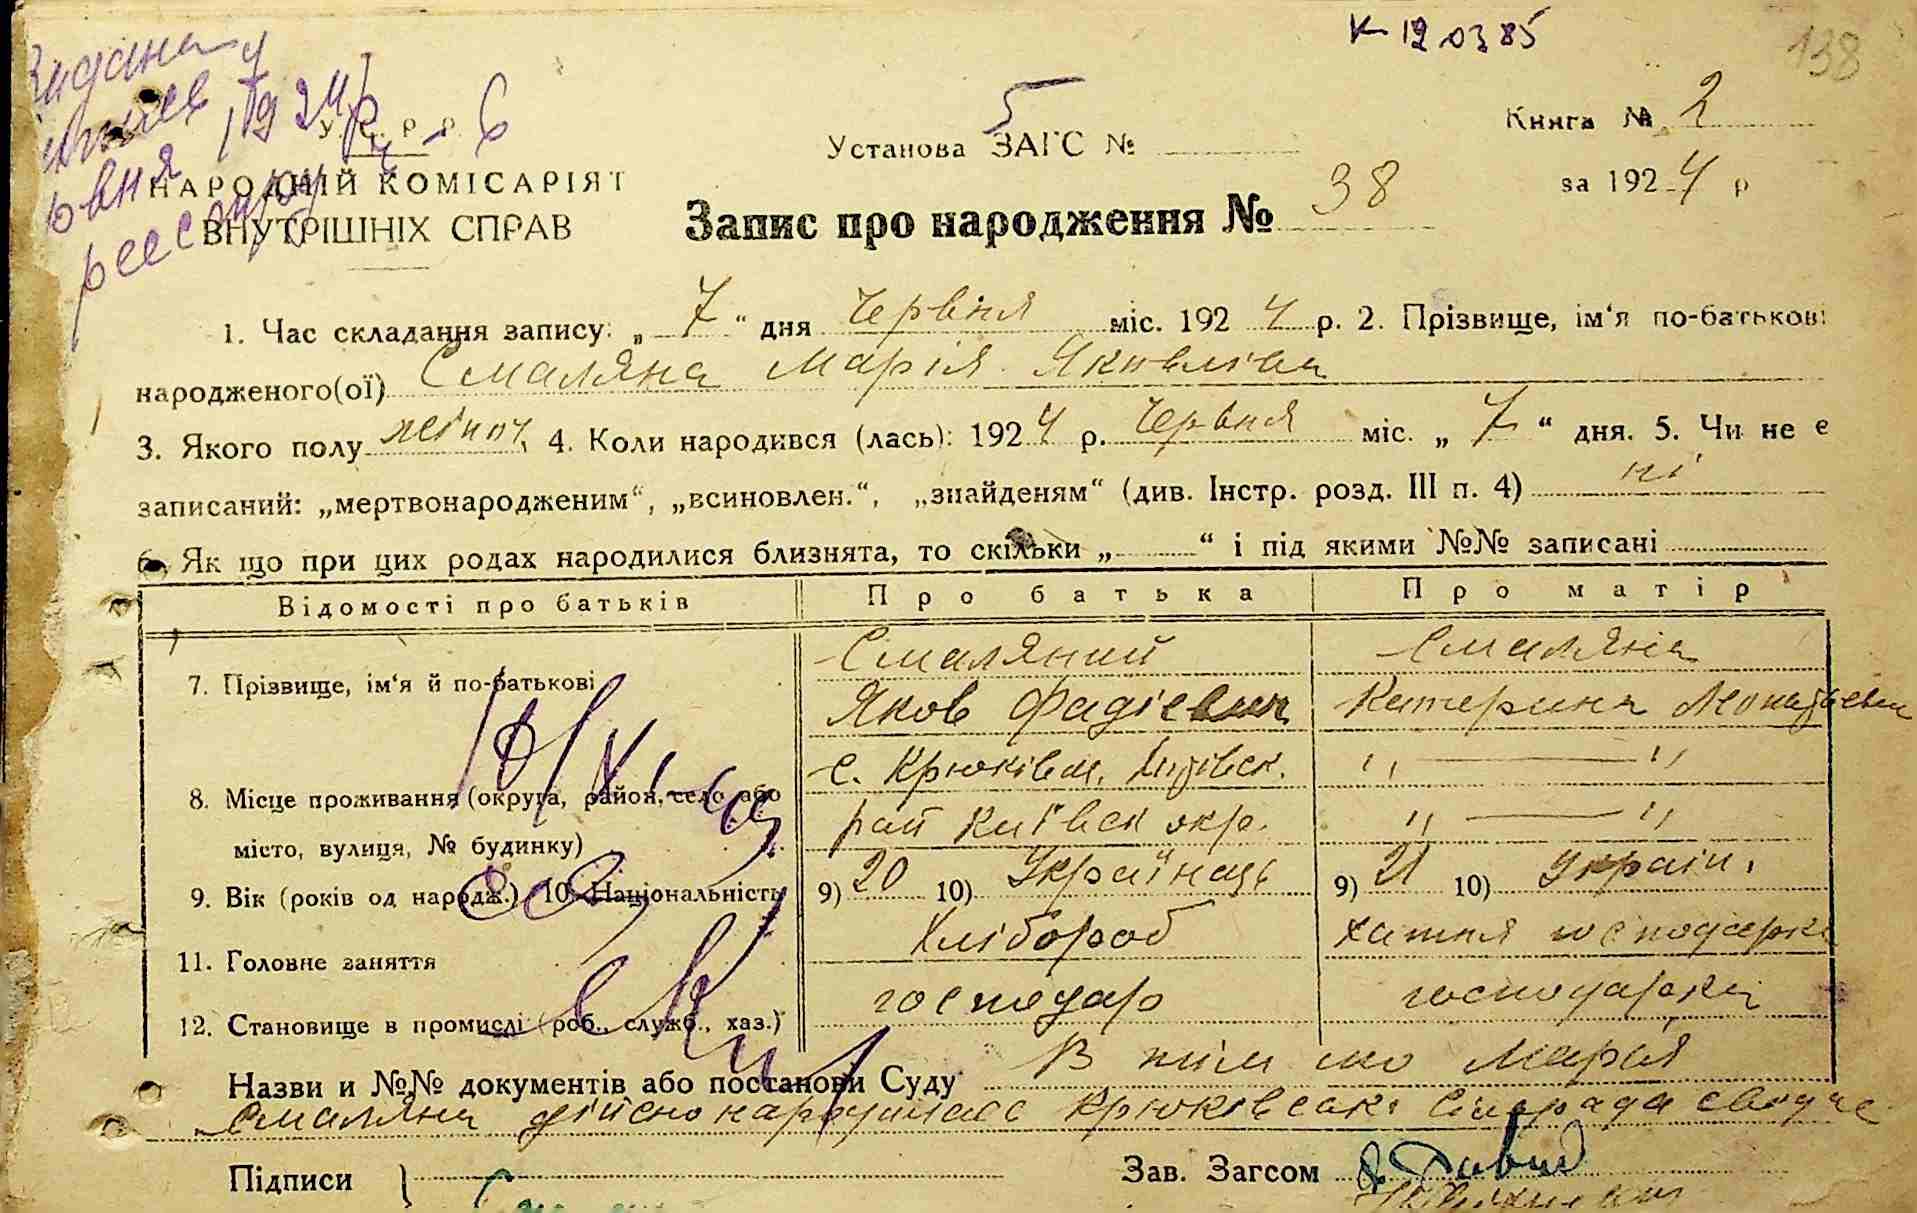 К-120385
138
Видана
1924 р
У. С. Р. Р. 6
реєстру
НАРОДНІЙ КОМІСАРІЯТ
ВНУТРІШНІХ СПРАВ
Установа ЗАГС № 5
Книга № 2
за 1924 р
Запис про народження № 38
1. Час складання запису: „7“ дня Червіня міс. 1924 р. 2. Прізвище, ім‘я по-батькові
народженого(ої) Смаляна Марія Яковлівна
3. Якого полу жіноч, 4. Коли народився (лась): 1924 р. Червня міс. „7“ дня. 5. Чи не є
записаний: „мертвонародженим“, „всиновлен.“, „знайденям“ (див. Інстр. розд. III п. 4) ні
6. Як що при цих родах народилися близнята, то скільки „ “ і під якими №№ записані
Відомості про батьків Про батька Про матір
7. Прізвище, ім‘я й по-батькові Смаляний Смаляна
Яков Фадієвич Катерина
8. Місце проживання (округа, район, село або с. Крюківш, „ — “
місто, вулиця, № будинку) рай Київск окр. „ — “
9. Вік (років од народж.) 10. Національність 9) 20 10) Українаць 9) 21 10) Україн.
11. Головне заняття Хлібороб хатня господарка
12. Становище в промислі (роб., служб., хаз.) господар господарка
Назви и №№ документів або постанови Суду В тім що Марія
Смаляна дійсно народилась Крюківська Сілорада свідчє
Підписи
Зав. Загсом